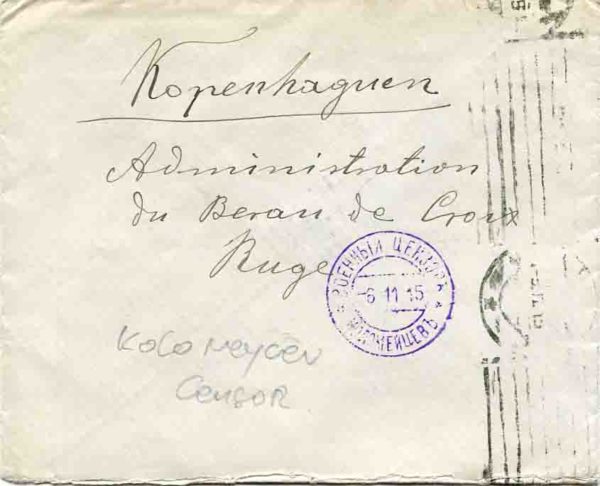 Kopenhaguen
Administration
du Berau de Croix
Ruge
ВОЕННЫЙ ЦЕНЗОРЪ
-6 11 15
КОЛОМЕЙЦЕВЪ
Kolomeycev
Censor